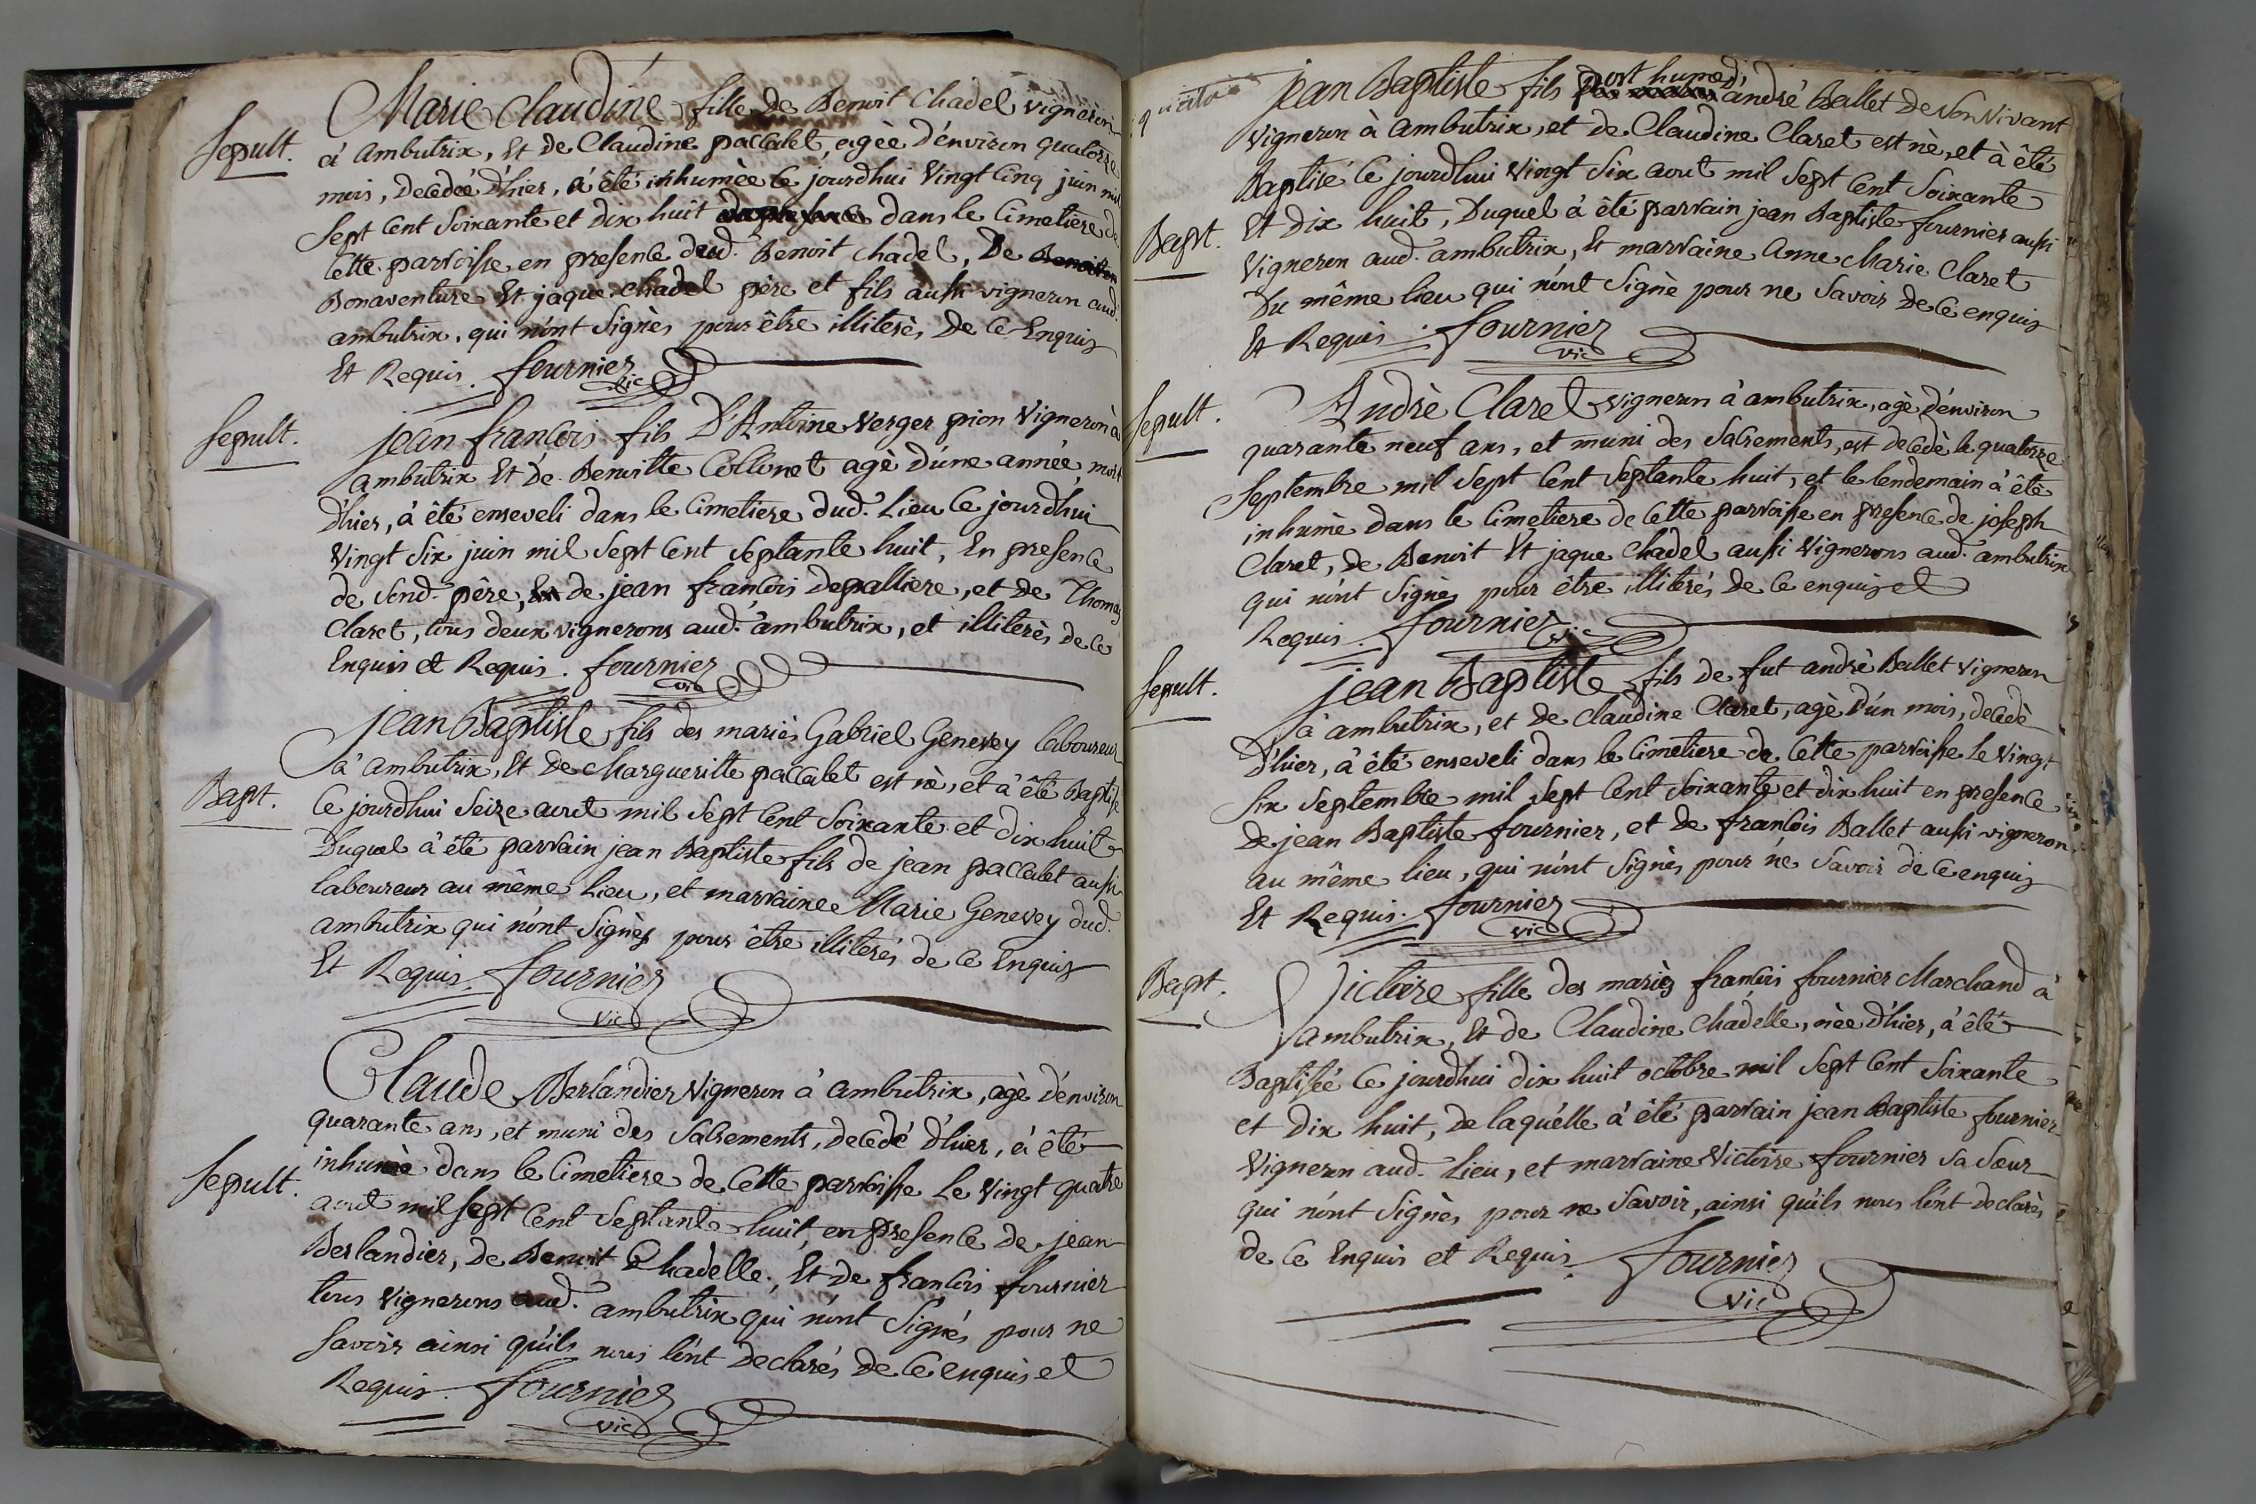 Marie Claudine fille de Benoit Chadel vigneron
Sepult.
à ambutrix, Et de Claudine paccalet, agèe d'environ quatorze
mois, decedèe d'hier, à été inhumèe ce jourdhui vingt cinq juin mil
sept cent soixante et dix huit dans le cimetiere de
cette parroisse en presence dud. Benoit chadel, De
Bonaventure Et jaque chadel père et fils aussi vigneron aud.
ambutrix, qui n'ont signès pour être illiterès, De ce Enquis
Et Requis. fournier
vic
Sepult.
jean francois fils D'Antoine Verger pion Vigneron à
ambutrix Et de Benoitte Collonet agè d'une année, mort
d'hier, à été enseveli dans le cimetiere dud. Lieu ce jourdhui
vingt six juin mil sept cent septante huit, En presence
de send. père, de jean francois depalliere, et de Thomas
Claret, tous deux vignerons aud. ambutrix, et illiterès de ce
Enquis et Requis. fournier
vic
jean Baptiste fils des mariès Gabriel Genevey laboureur
à ambutrix, Et de Margueritte paccalet est nè, et à été Baptisé
Bapt.
ce jourdhui seize aout mil sept cent soixante et dix huit
Duquel à été parrain jean Baptiste fils de jean paccalet aussi
laboureur au même lieu, et marraine Marie Genevey dud.
ambutrix qui n'ont signès pour être illiterés de ce Enquis
Et Requis. fournier
vic
Claude Berlandier Vigneron à ambutrix, agè d'environ
quarante ans, et muni des sacrements, decedé d'hier, à été
Sepult.
inhumè dans le cimetiere de cette parroisse le vingt quatre
aout mil sept cent septante huit, en presence de jean
Berlandier, de Benoit Chadelle, Et de francois fournier
tous vignerons aud. ambutrix qui n'ont signés pour ne
savoir ainsi qu'ils nous l'ont declarés de ce enquis et
Requis. fournier
vic
jean Baptiste fils post hume d' andré Ballet de son vivant
vigneron à ambutrix, et de Claudine Claret est nè, et à été
Baptisé ce jourdhui vingt six aout mil sept cent soixante
Bapt.
Et dix huit, Duquel à été parrain jean Baptiste fournier aussi
vigneron aud. ambutrix, Et marraine Anne Marie Claret
du même lieu qui n'ont signè pour ne savoir de ce enquis
Et Requis. fournier
vic
Sepult.
Andrè Claret vigneron à ambutrix, agè d'environ
quarante neuf ans, et muni des sacrements, est decedè le quatorze
septembre mil sept cent septante huit, et le lendemain à été
inhumè dans le cimetiere de cette parroisse en presence de joseph
Claret, de Benoit Et jaque Chadel aussi vignerons aud. ambutrix
qui n'ont signès pour être illiterés de ce enquis et
Requis. fournier
vic
Sepult.
jean Baptiste fils de fut andrè Ballet vigneron
à ambutrix, et de Claudine Claret, agè d'un mois, decedè
d'hier, à été enseveli dans le cimetiere de cette parroisse le vingt
six septembre mil sept cent soixante et dix huit en presence
de jean Baptiste fournier, et de francois Ballet aussi vigneron
au même lieu, qui n'ont signès pour ne savoir de ce enquis
Et Requis. fournier
vic
Bapt.
Victoire fille des mariès francois fournier Marchand à
ambutrix, Et de Claudine chadelle, nèe d'hier, à été
Baptisée ce jourdhui dix huit octobre mil sept cent soixante
et dix huit, de laquelle à été parrain jean Baptiste fournier
vigneron aud. lieu, et marraine Victoire fournier sa sœur
qui n'ont signès pour ne savoir, ainsi qu'ils nous l'ont declarès
de ce Enquis et Requis. fournier
vic